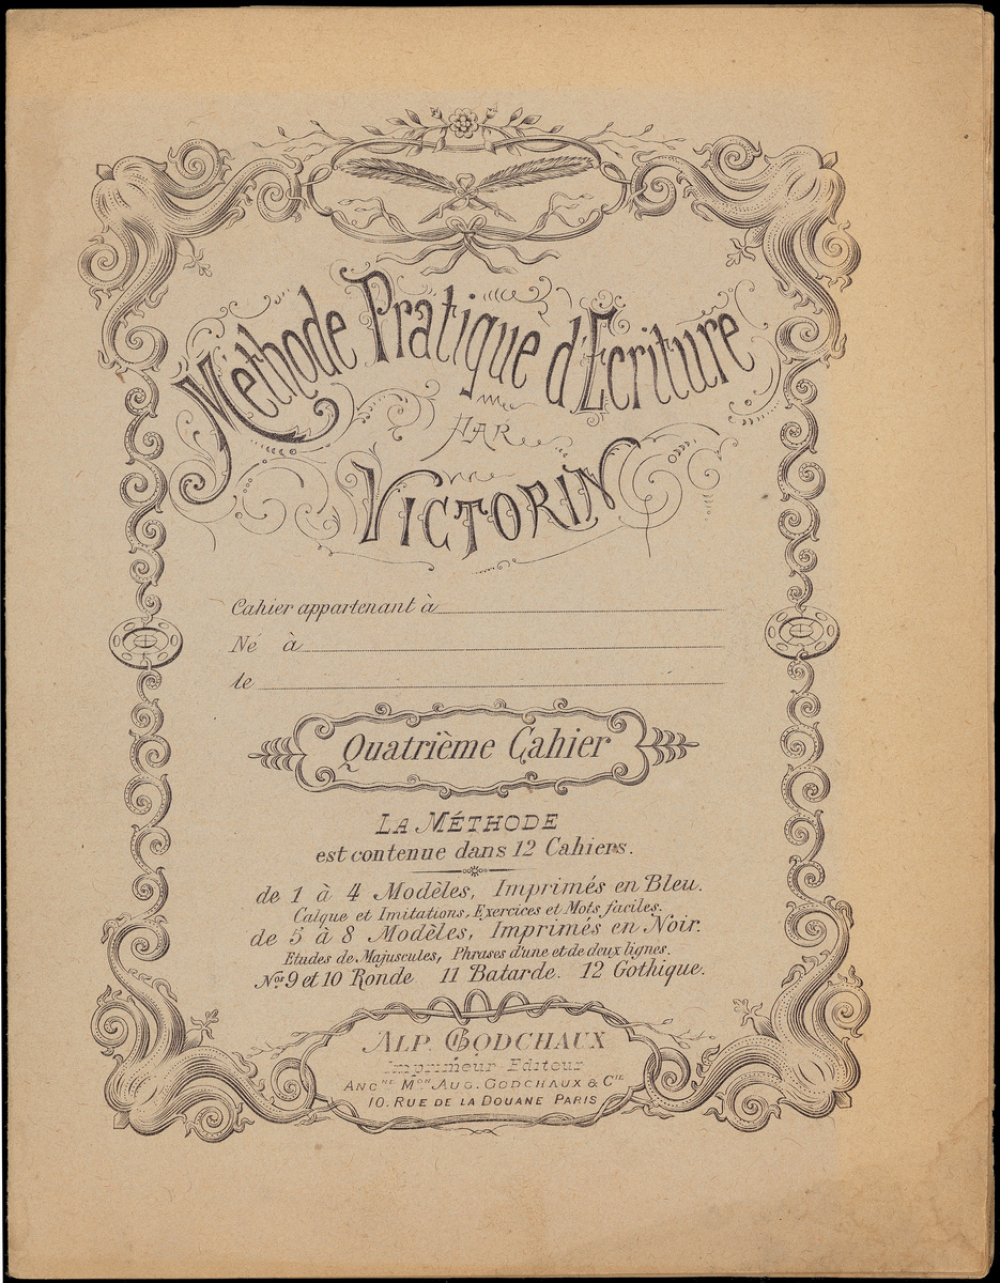 Méthode Pratique d'Ecriture
PAR
VICTORIN
Cahier appartenant à
Né à
le
Quatrième Cahier
LA MÉTHODE
est contenue dans 12 Cahiers.
de 1 à 4 Modèles, Imprimés en Bleu.
Calque et Imitations, Exercices et Mots faciles.
de 5 à 8 Modèles, Imprimés en Noir.
Etudes de Majuscules, Phrases d'une et de deux lignes.
Nos 9 et 10 Ronde 11 Batarde. 12 Gothique.
ALP. GODCHAUX
Imprimeur-Editeur
ANCNE MON AUG. GODCHAUX & CIE
10. RUE DE LA DOUANE PARIS